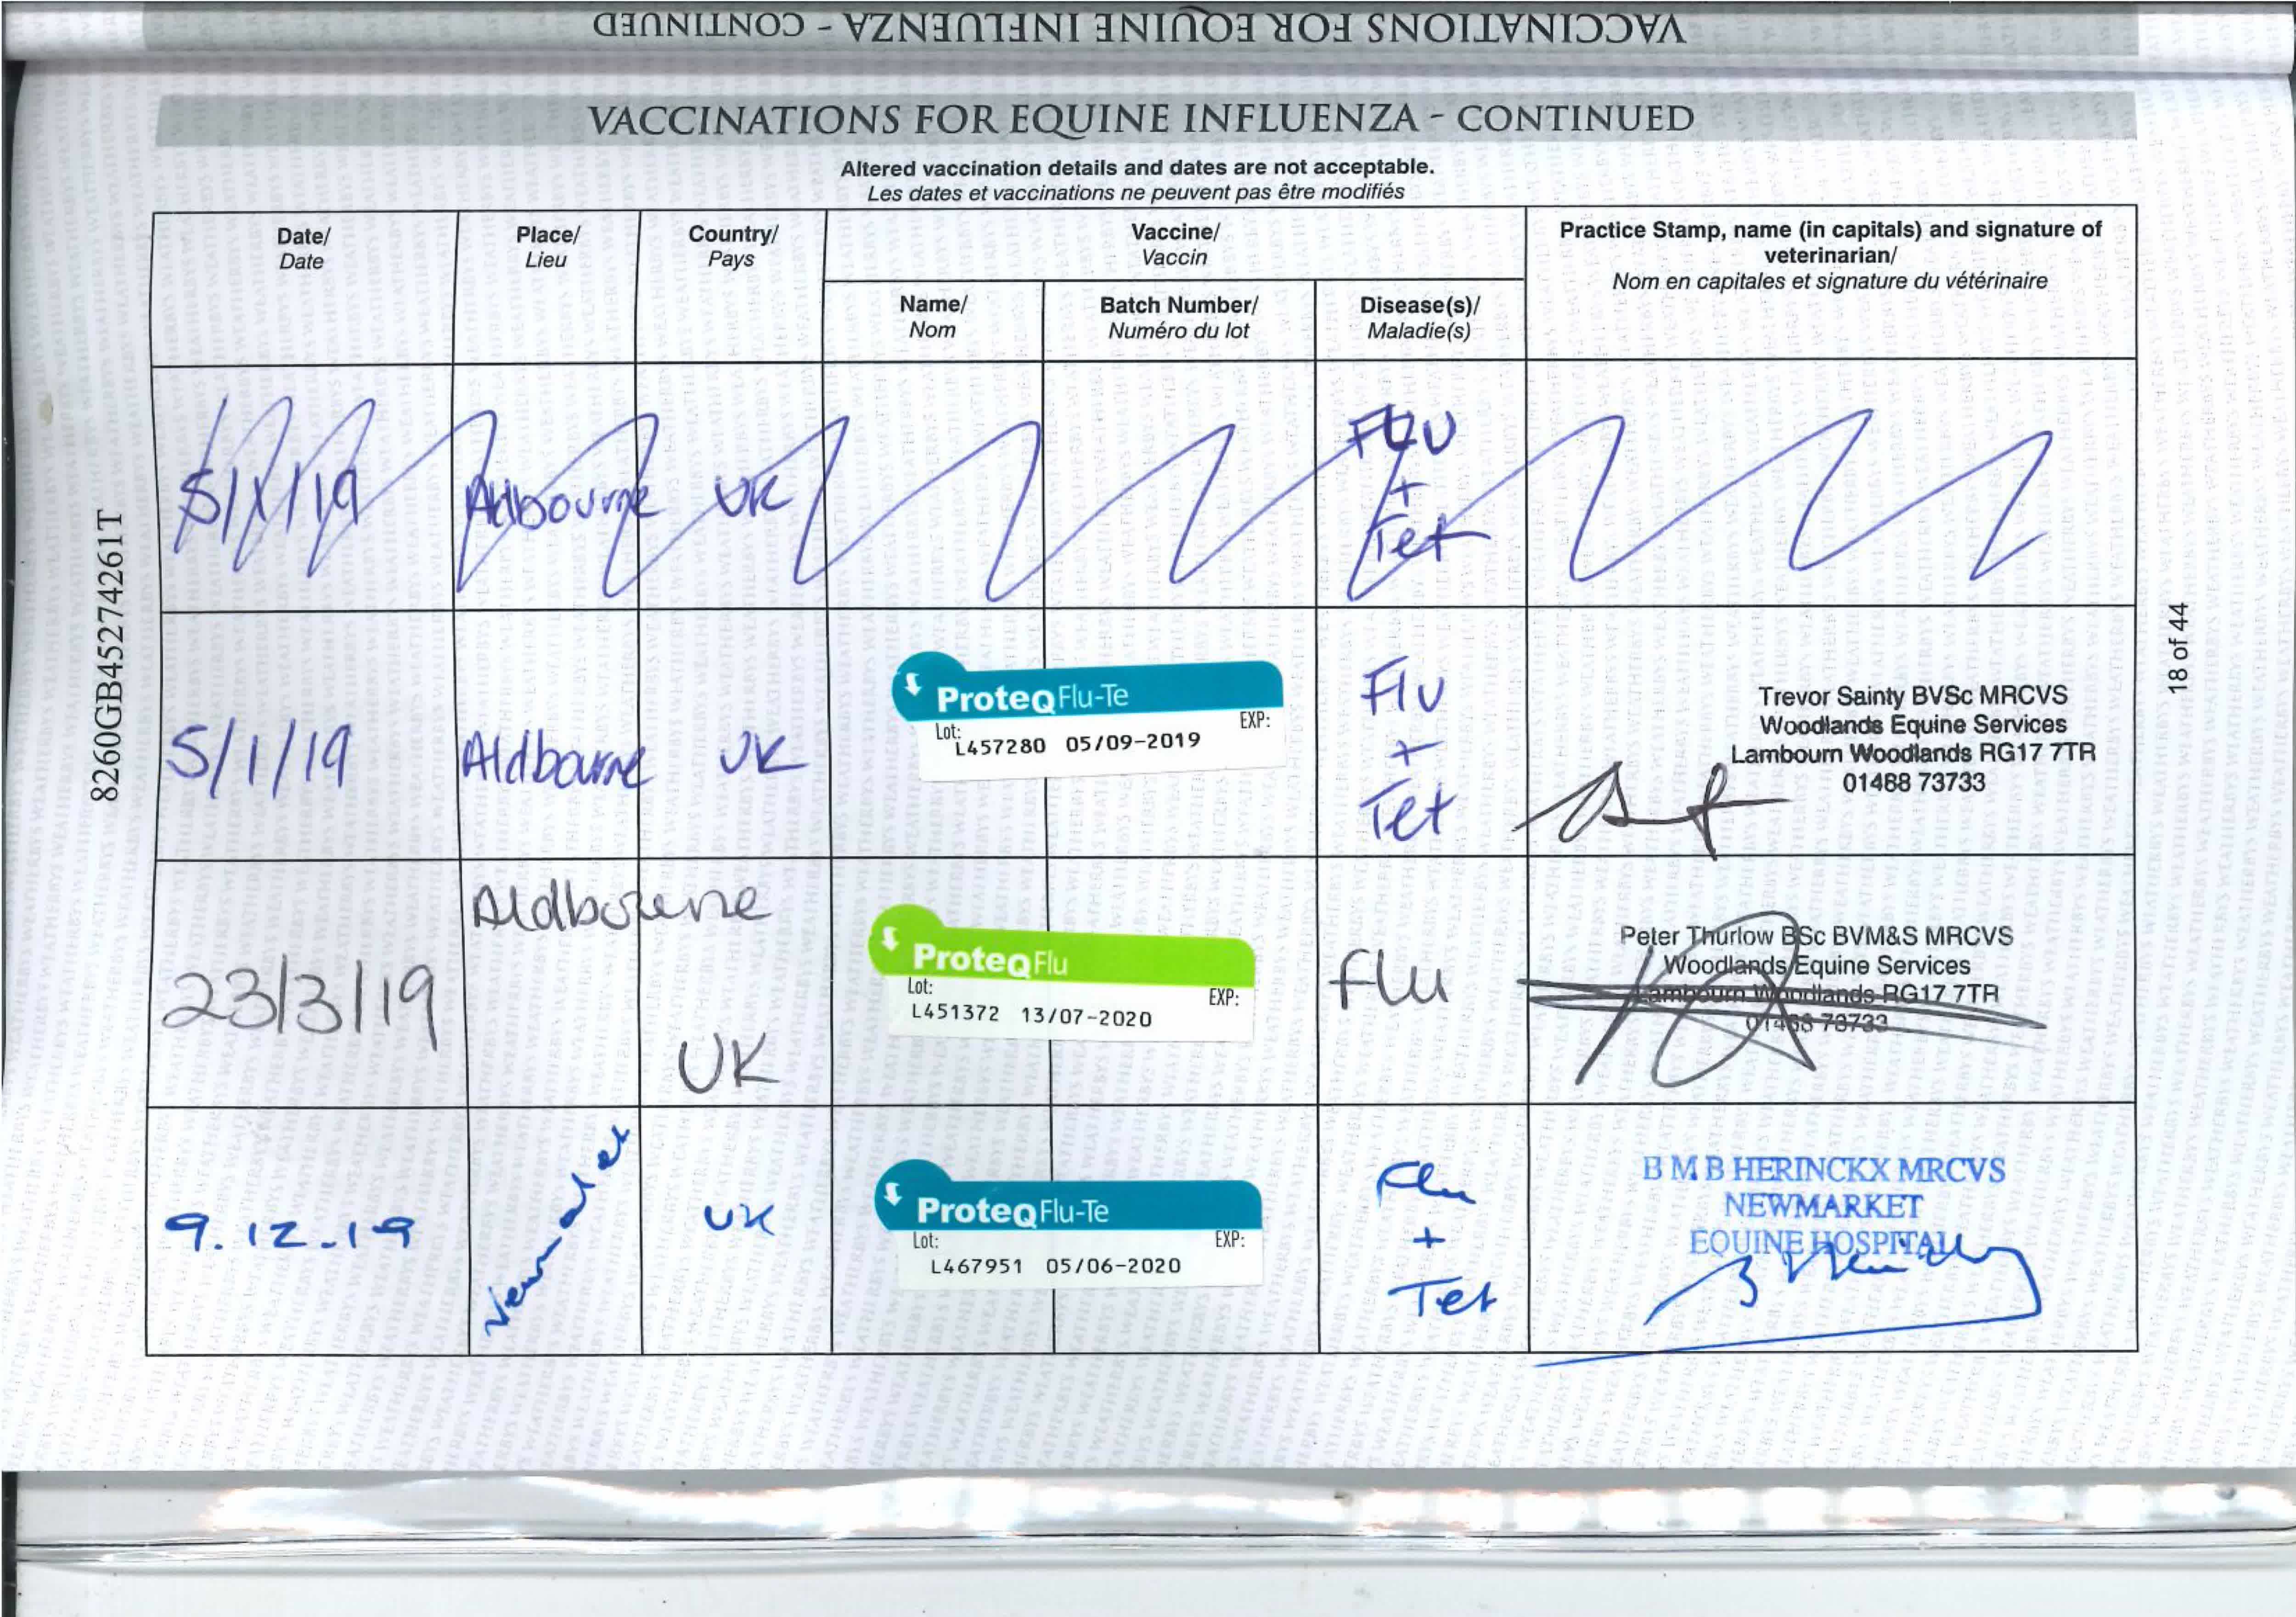 VACCINATIONS FOR EQUINE INFLUENZA - CONTINUED
VACCINATIONS FOR EQUINE INFLUENZA - CONTINUED
Altered vaccination details and dates are not acceptable.
Les dates et vaccinations ne peuvent pas être modifiés
Date/
Date
Place/
Lieu
Country/
Pays
Vaccine/
Vaccin
Name/
Nom
Batch Number/
Numéro du lot
Disease(s)/
Maladie(s)
Practice Stamp, name (in capitals) and signature of
veterinarian/
Nom en capitales et signature du vétérinaire
5/1/19
UK
FLU
+
Tet
5/1/19
Aldbourne
UK
ProteqFlu-Te
Lot:
EXP:
L457280 05/09-2019
Flu
+
Tet
Trevor Sainty BVSc MRCVS
Woodlands Equine Services
Lambourn Woodlands RG17 7TR
01488 73733
23/3/19
Aldbourne
UK
ProteqFlu
Lot:
EXP:
L451372 13/07-2020
flu
Peter Thurlow BSc BVM&S MRCVS
Woodlands Equine Services
Lambourn Woodlands RG17 7TR
01488 73733
9.12.19
UK
ProteqFlu-Te
Lot:
EXP:
L467951 05/06-2020
Flu
+
Tet
B M B HERINCKX MRCVS
NEWMARKET
EQUINE HOSPITAL
8260GB45274261T
18 of 44